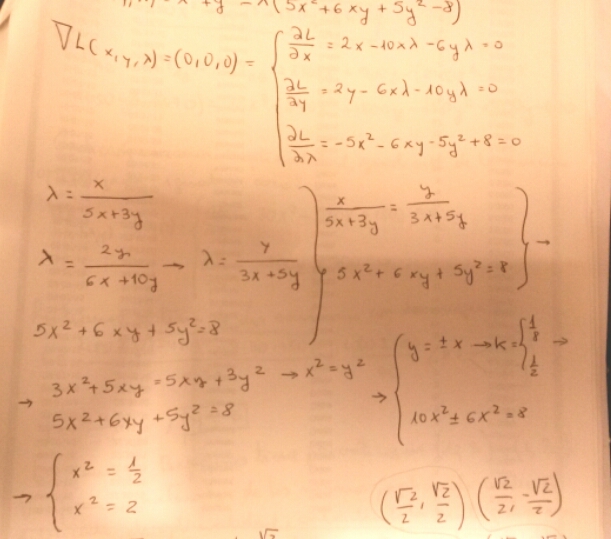 x² + y² - λ(5x² + 6xy + 5y² - 8)
∇L(x, y, λ) = (0, 0, 0) = { ∂L/∂x = 2x - 10xλ - 6yλ = 0
∂L/∂y = 2y - 6xλ - 10yλ = 0
∂L/∂λ = -5x² - 6xy - 5y² + 8 = 0
λ = x/(5x+3y)
λ = 2y/(6x+10y) → λ = y/(3x+5y)
5x² + 6xy + 5y² = 8
} x/(5x+3y) = y/(3x+5y)
5x² + 6xy + 5y² = 8 } →
→ 3x² + 5xy = 5xy + 3y² → x² = y²
5x² + 6xy + 5y² = 8
→ { y = ± x → k = { 1/8 1/2 →
10x² ± 6x² = 8
→ { x² = 1/2
x² = 2
(√2/2, √2/2) (√2/2, -√2/2)